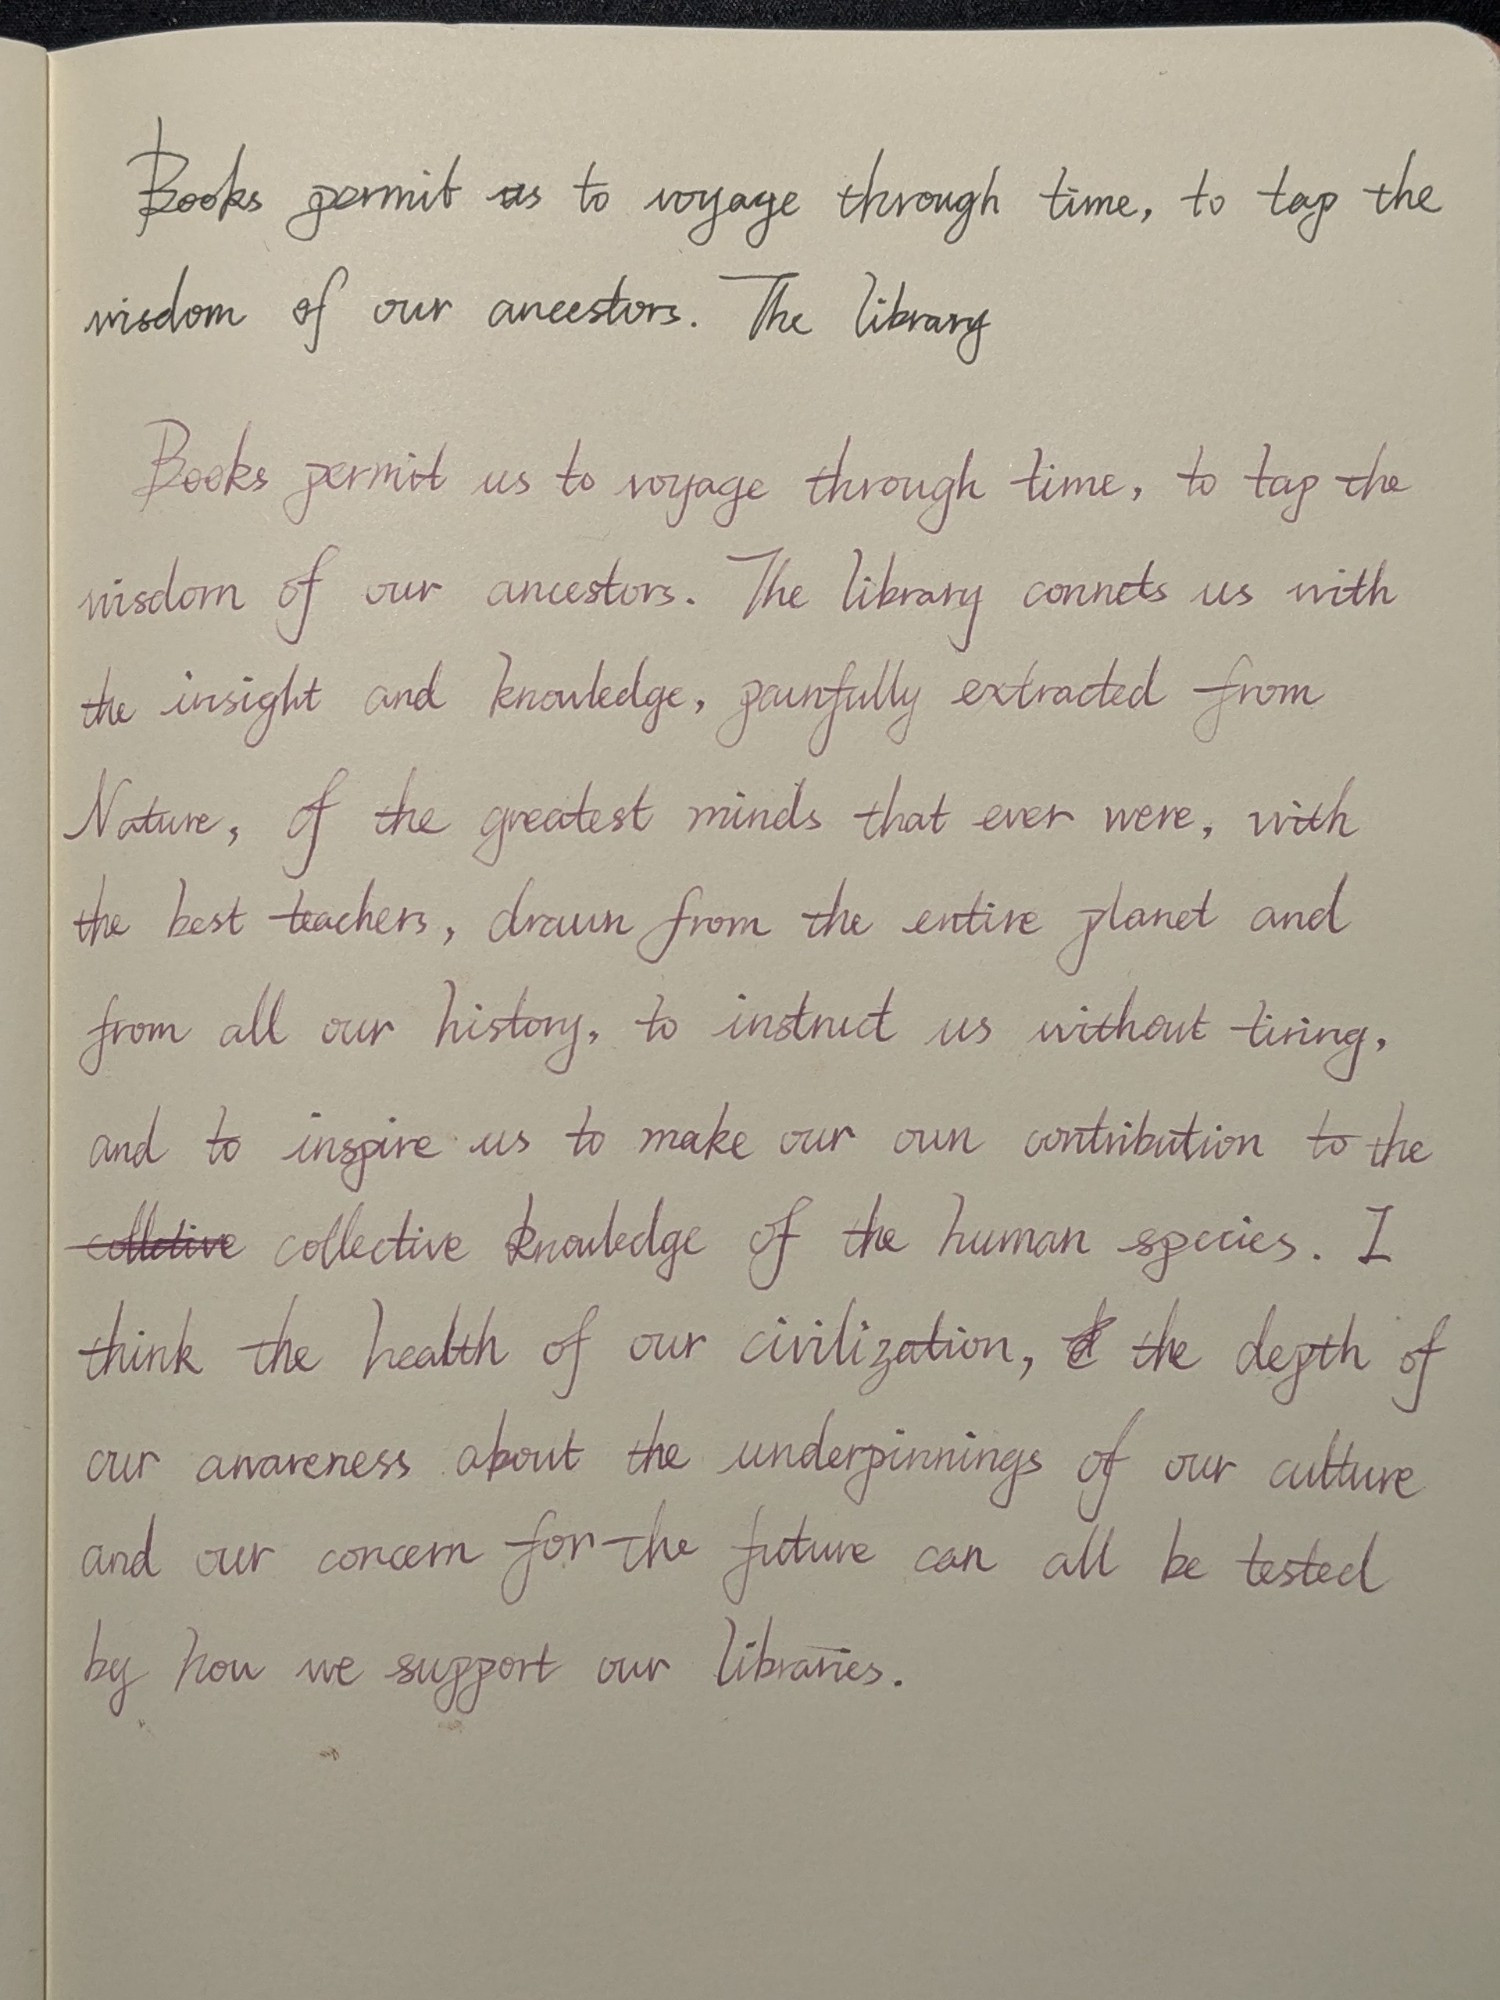 Books permit us to voyage through time, to tap the
wisdom of our ancestors. The library
Books permit us to voyage through time, to tap the
wisdom of our ancestors. The library connets us with
the insight and knowledge, painfully extracted from
Nature, of the greatest minds that ever were, with
the best teachers, drawn from the entire planet and
from all our history, to instruct us without tiring,
and to inspire us to make our own contribution to the
collective knowledge of the human species. I
think the health of our civilization, the depth of
our awareness about the underpinnings of our culture
and our concern for the future can all be tested
by how we support our libraries.